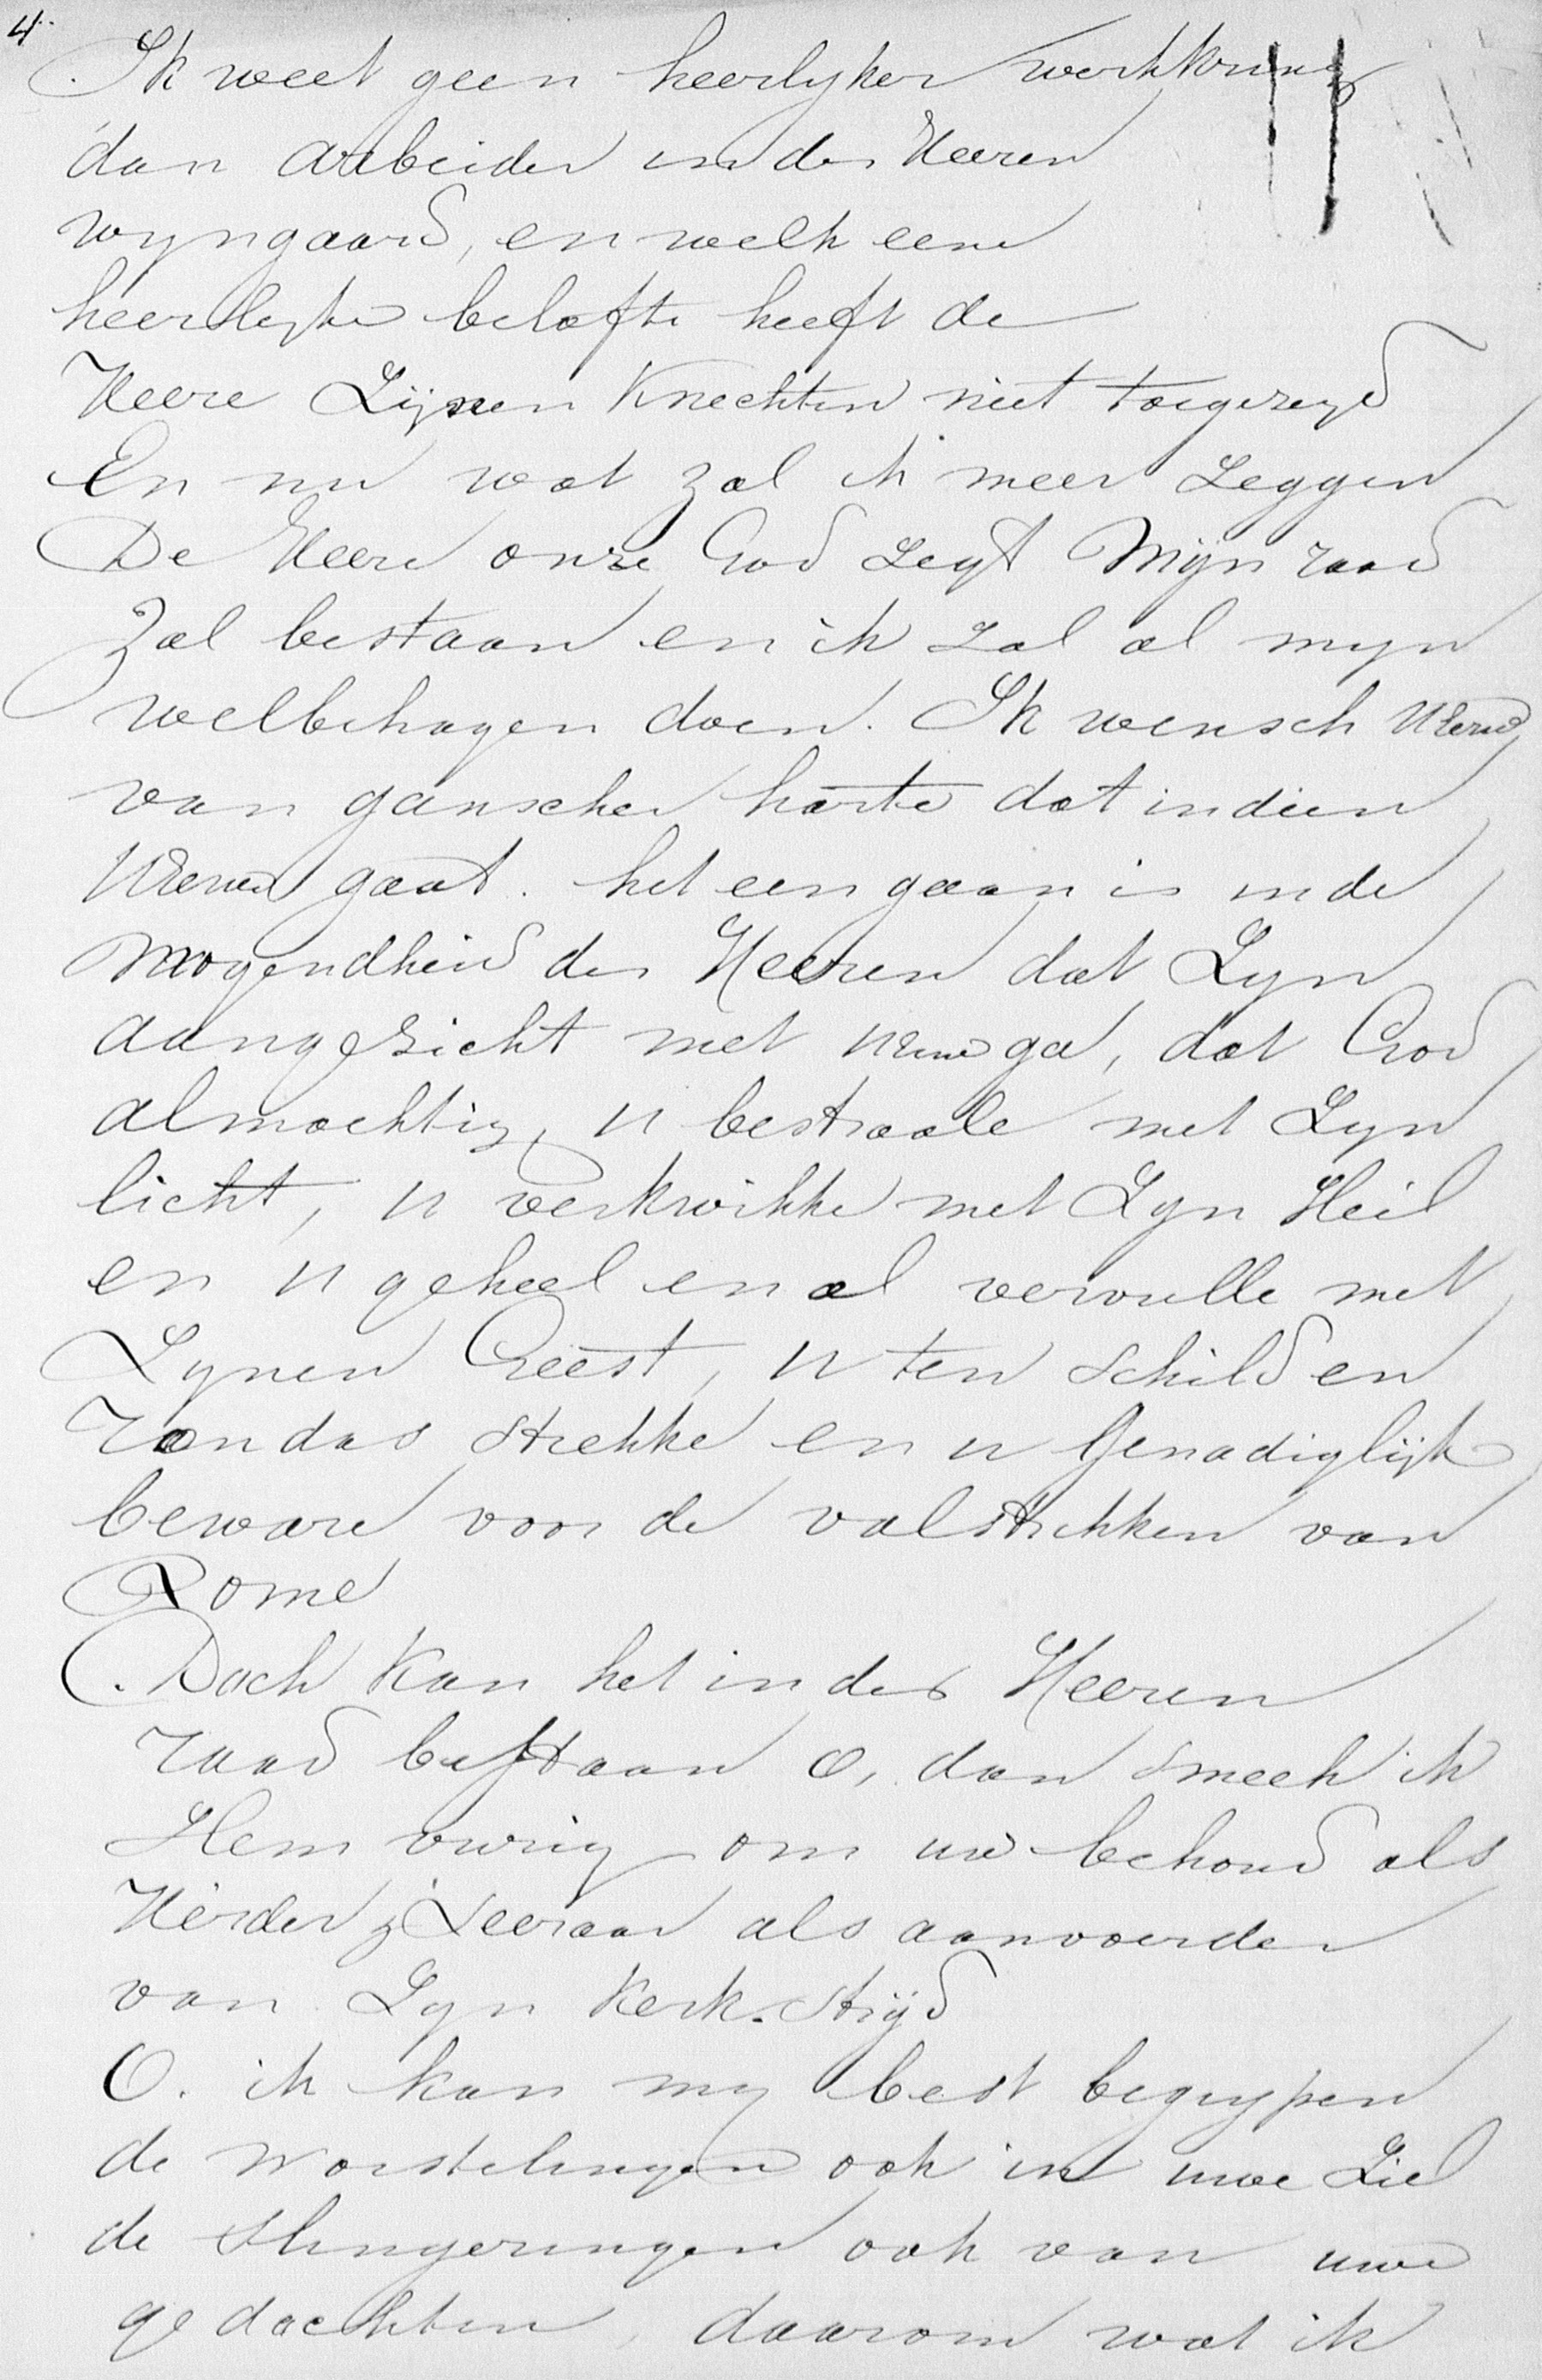 4.
Ik weet geen heerlyker werkkring
dan arbeider in des Heeren
wyngaard, en welk eene
heerlyke belofte heeft de
Heere Zijnen Knechten niet toegezegd
En nu wat zal ik meer Zeggen
De Heere onze God Zegt Mijn raad
Zal bestaan en ik zal al myn
welbehagen doen. Ik wensch UEerw
van ganscher harte dat indien
UEerw gaat. het een gaan is in de
Mogendheid des Heeren dat Zyn
aangezicht met UEerw ga, dat God
almachtig u bestraale met Zyn
licht, u verkwikke met Zyn Heil
en u geheel en al vervulle met
Zynen Geest, u ten Schild en
rondas strekke en u Genadiglijk
beware voor de valstrikken van
Rome
Doch Kan het in des Heeren
raad bestaan O, dan smeek ik
Hem vurig om uw behoud als
Herder & Leeraar als aanvoerder
van Zyn Kerk. Strijd
O. ik kan my best begrypen
de worstelingen ook in uwe Ziel
de slingeringen ook van uwe
gedachten, daarom wat ik